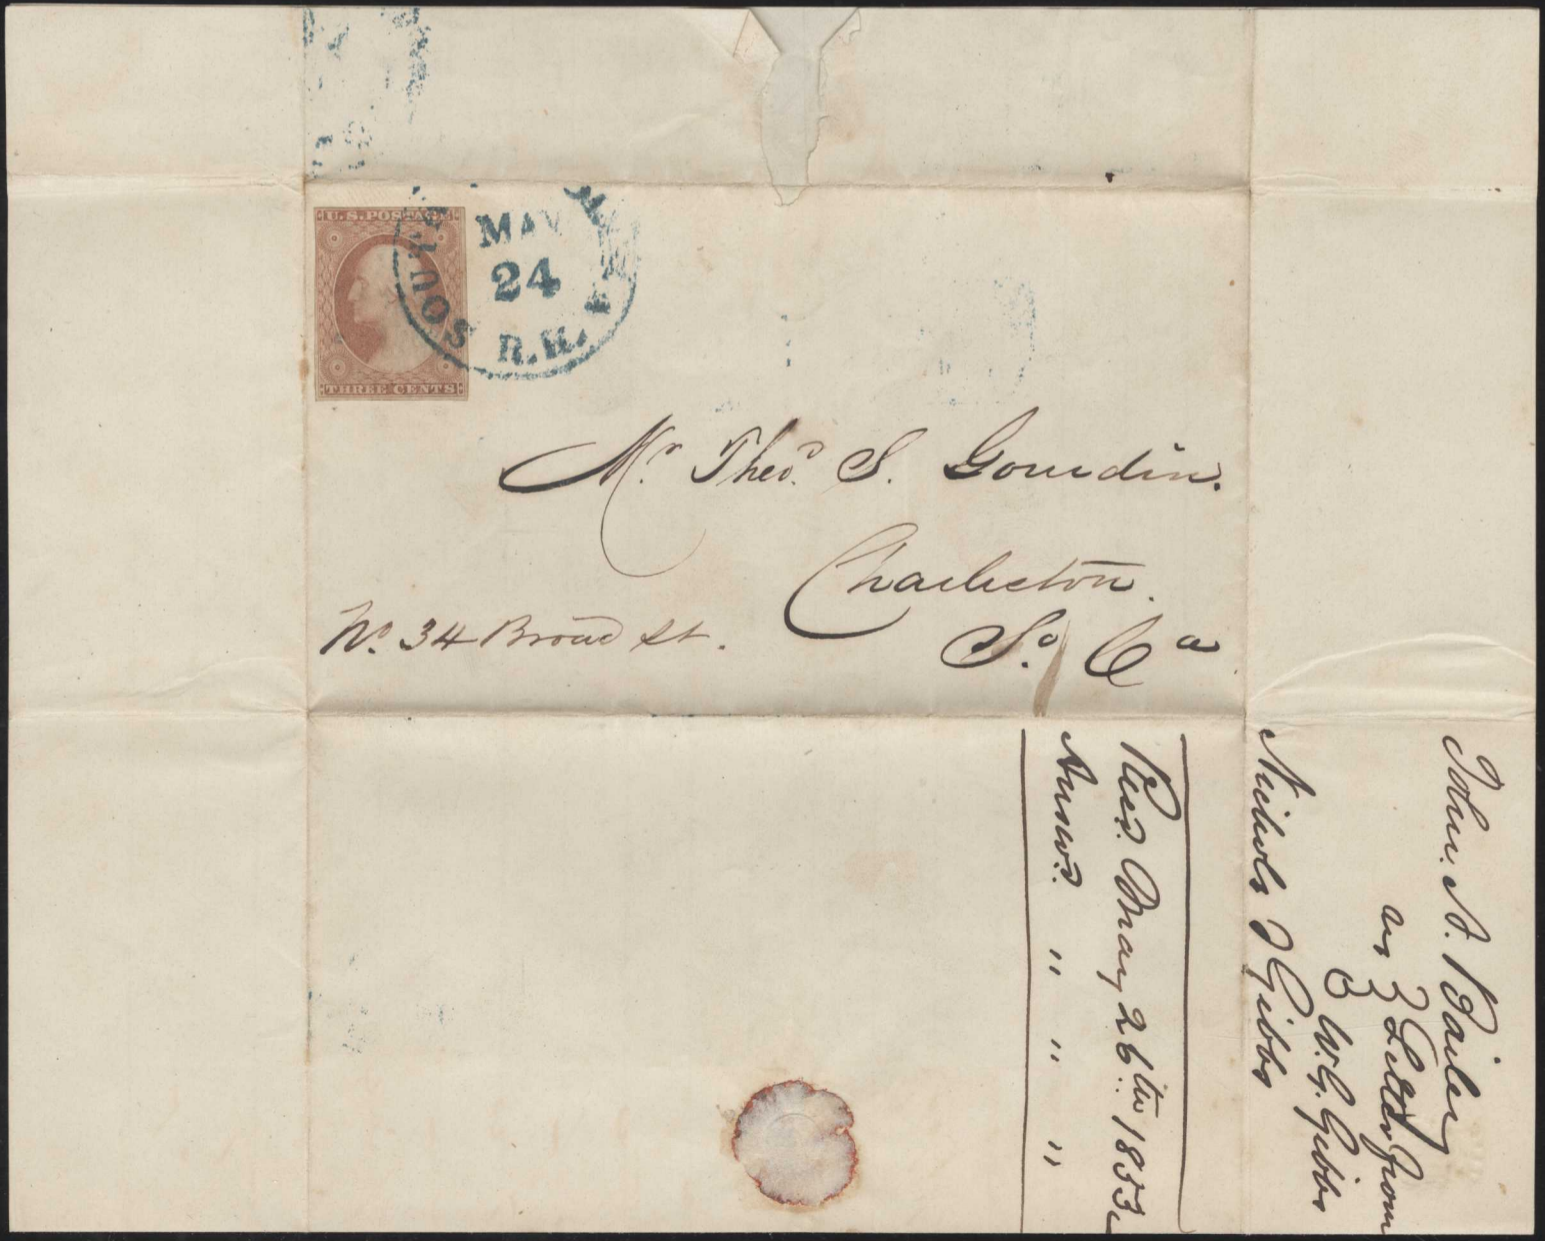 U.S. POSTAGE
THREE CENTS
SOUTH
MAY
24
R.R.
Mr. Theo. S. Gourdin.
Charleston.
So. Ca
No. 34 Broad St.
John A. Bailey
3 Letter from
W. G. Gibbs
Nichols & Gibbs
Recd. May 26th 1853
Answd. " " "